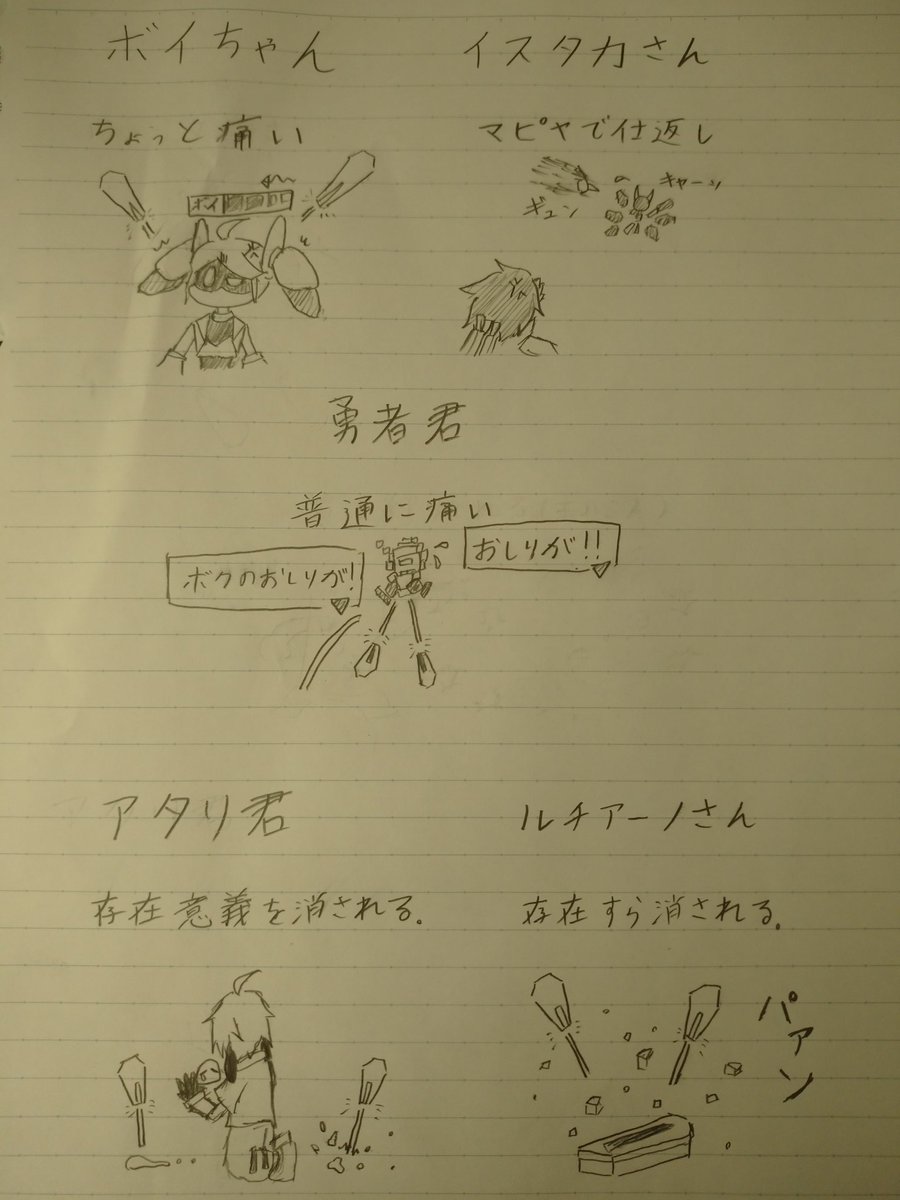 ボイちゃん
ちょっと痛い
ボイ
イスタカさん
マピヤで仕返し
ギュン
キャーン
勇者君
普通に痛い
ボクのおしりが!
おしりが!!
アタリ君
存在意義を消される.
ルチアーノさん
存在すら消される.
パァン